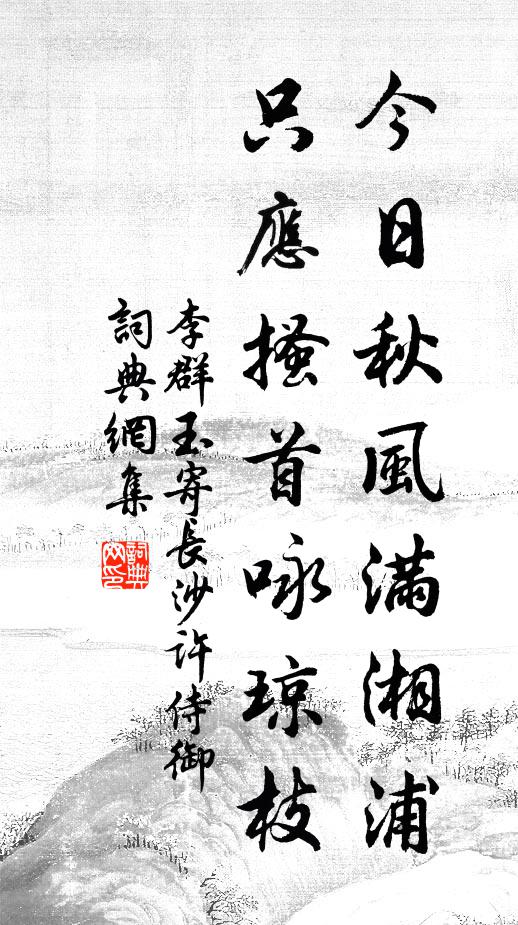 今日秋風滿湘浦
只應搔首咏琼枝
李群玉寄長沙許侍御
詞典網集
詞典
网印